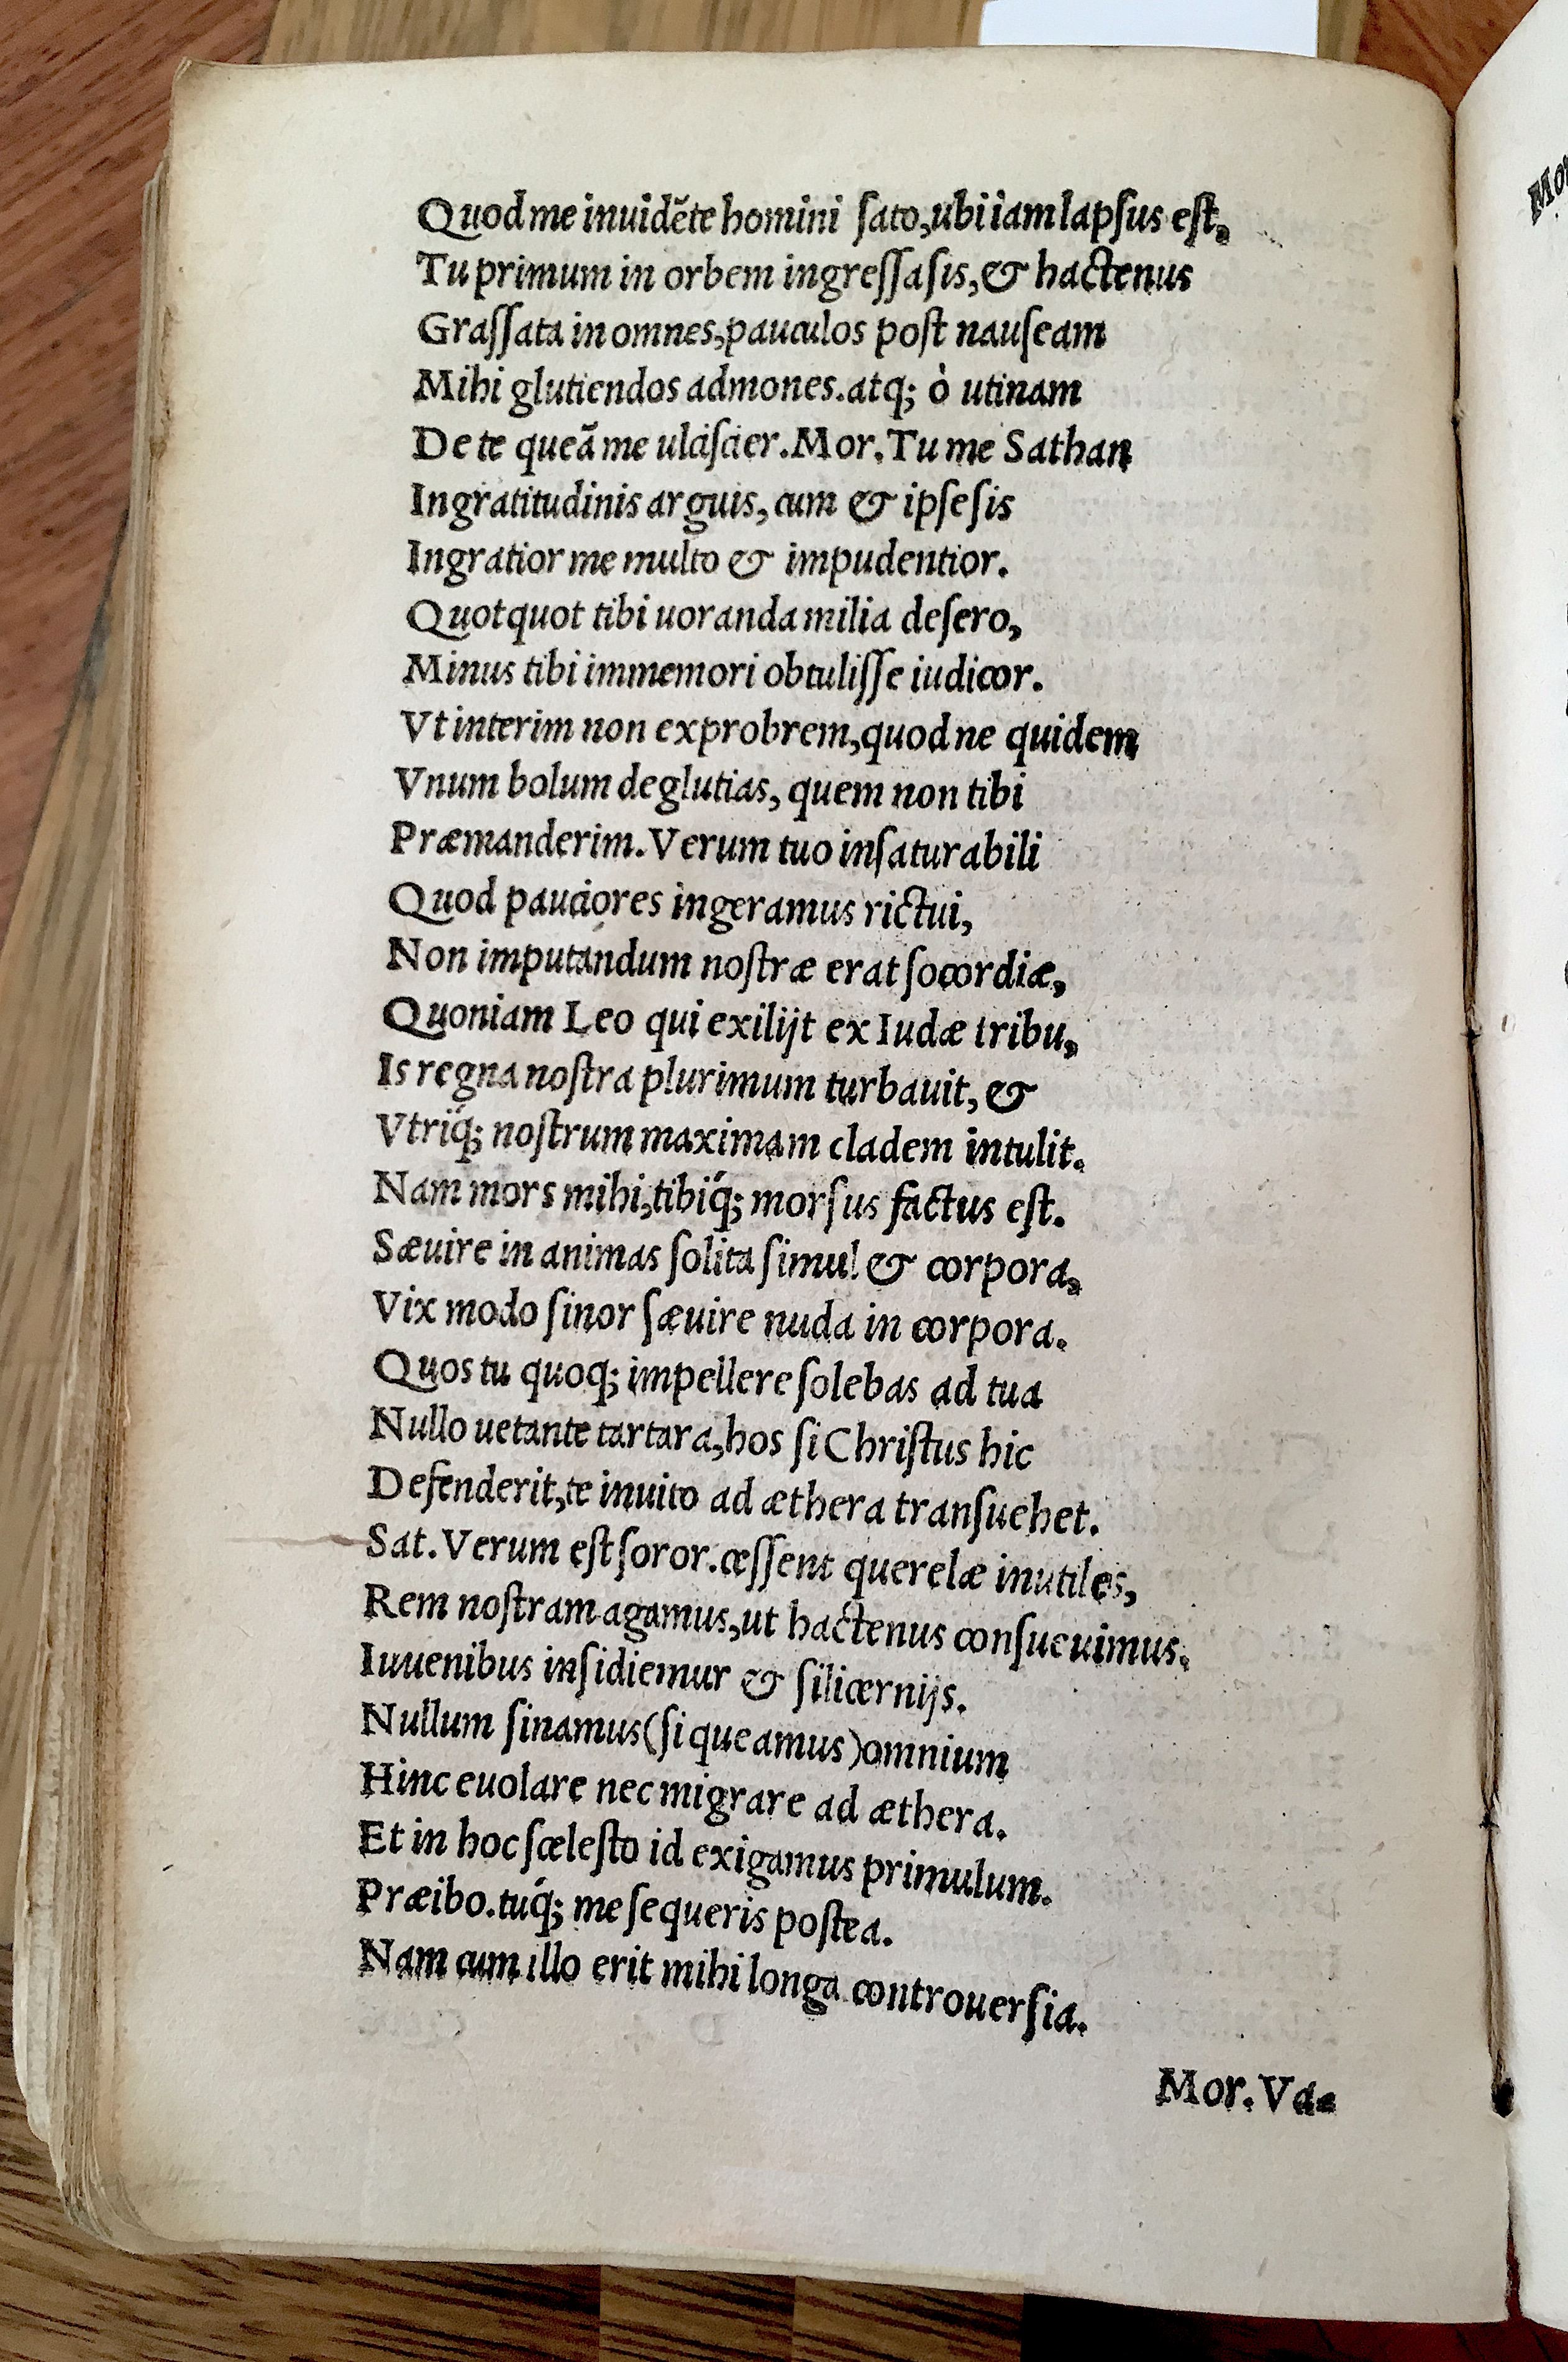 Quod me inuidẽte homini ſato,ubi iam lapſus eſt,
Tu primum in orbem ingreſſa ſis,& hactenus
Graſſata in omnes,pauculos poſt nauſeam
Mihi glutiendos admones.atq; ò utinam
De te queã me ulciſcier.Mor.Tu me Sathan
Ingratitudinis arguis, cum & ipſe ſis
Ingratior me multo & impudentior.
Quotquot tibi uoranda milia deſero,
Minus tibi immemori obtuliſſe iudicor.
Vt interim non exprobrem,quod ne quidem
Vnum bolum deglutias, quem non tibi
Præmanderim.Verum tuo inſaturabili
Quod pauciores ingeramus rictui,
Non imputandum noſtræ erat ſocordiæ,
Quoniam Leo qui exilijt ex Iudæ tribu,
Is regna noſtra plurimum turbauit, &
Vtriq́; noſtrum maximam cladem intulit.
Nam mors mihi,tibiq́; morſus factus eſt.
Sæuire in animas ſolita ſimul & corpora,
Vix modo ſinor ſæuire nuda in corpora.
Quos tu quoq; impellere ſolebas ad tua
Nullo uetante tartara,hos ſi Chriſtus hic
Defenderit,te inuito ad æthera tranſuehet.
Sat.Verum eſt ſoror.ceſſent querelæ inutiles,
Rem noſtram agamus,ut hactenus conſueuimus.
Iuuenibus inſidiemur & ſilicernijs.
Nullum ſinamus(ſi queamus)omnium
Hinc euolare nec migrare ad æthera.
Et in hoc ſceleſto id exigamus primulum.
Præibo.tuq́; me ſequeris poſtea.
Nam cum illo erit mihi longa controuerſia.
Mor.Va-